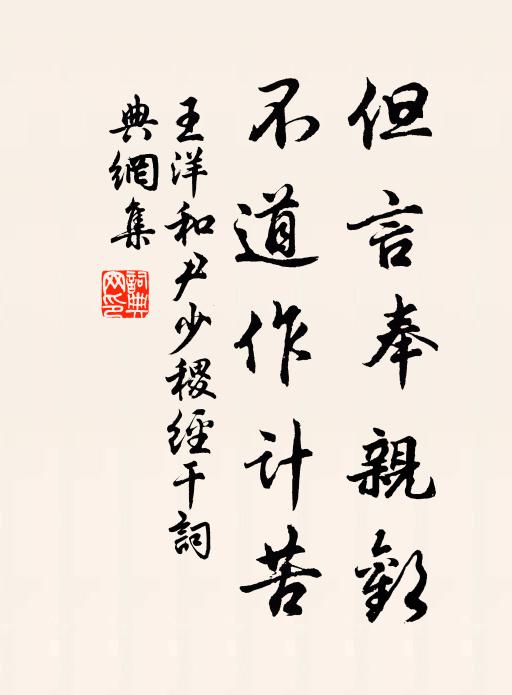 但言奉親歡
不道作計苦
王洋和尹少稷經干詞
典網集
詞典網印